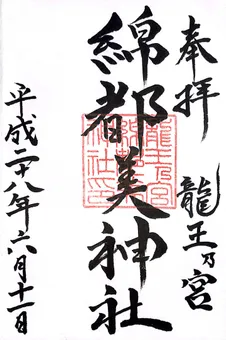 奉拝 龍王乃宮
綿都美神社
平成二十八年六月十一日